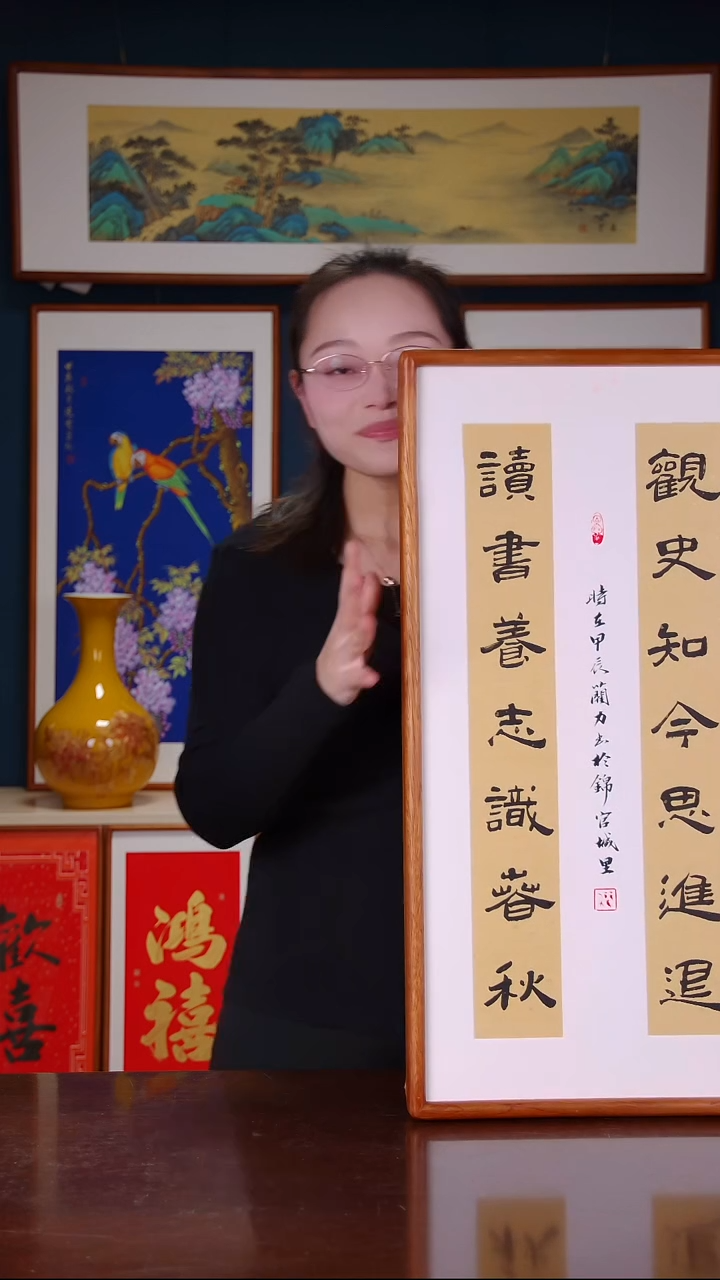 觀史知今思進退
時在甲辰藺力书於錦官城里
讀書養志識春秋
鴻禧
歡喜